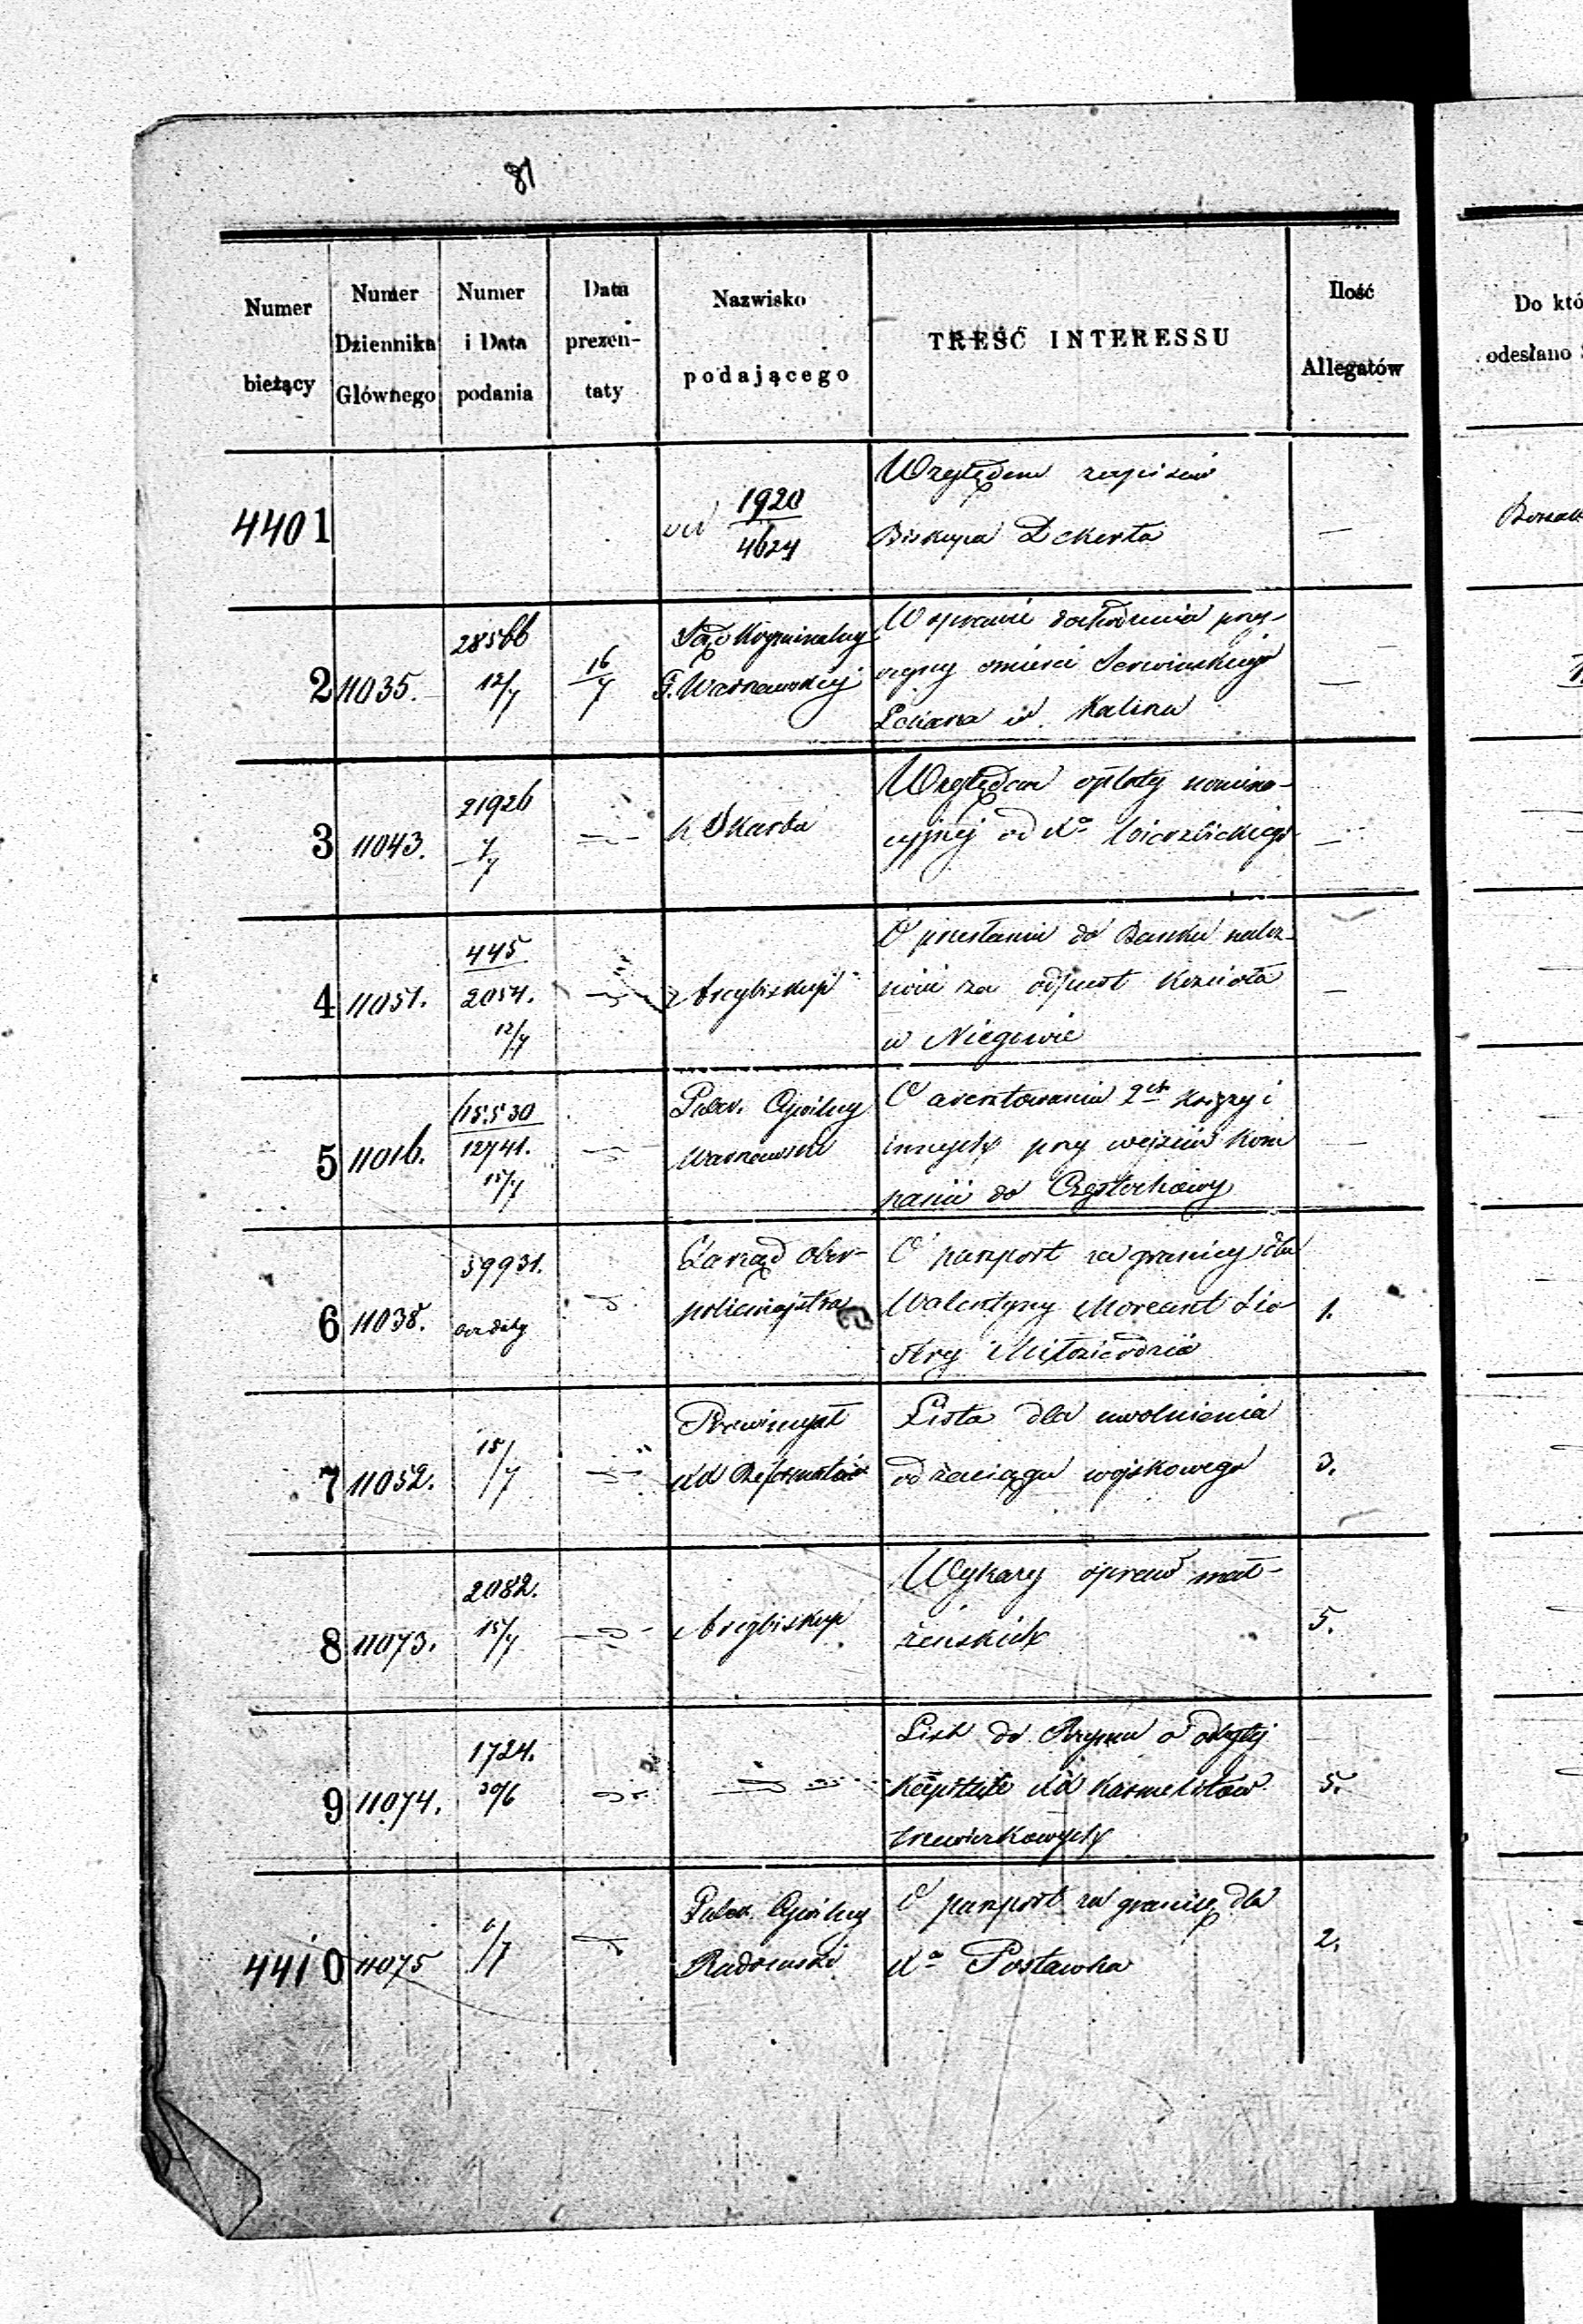 81
Numer bieżący
Numer Dziennika Głównego
Numer i Data podania
Data prezen-taty
Nazwisko podającego
TREŚĆ INTERESSU
Ilość Allegatów
Do któ
odesłano
4401
od 1920
4624
Względem zapisów
Biskupa Dekerta
—
2
11035.
28566
12/7
16/7
Sąd Kryminalny
G. Warszawskiej
W sprawie dochodzenia przy-
czyny śmierci Serwińskiego
Łukasza
—
3
11043.
21926
7/7
K. Skarbu
Względem opłaty nomina-
cyjnej od Xa Wierzbickiego
—
4
11051.
445
2054.
12/7
Arcybiskup
O przesłaniu do Banku należ-
ności za odpust Kościoła
w Niegowie
—
5
11016.
15530
12741.
15/7
Guber. Cywilny
Warszawski
O aresztowaniu 2ch Xięży i
innych przy wejściu Kom
panii do Częstochowy
—
6
11038.
59931.
bez daty
Zarząd Ober-
policmajstra
O paszport za granicę dla
Walentyny Morcant Sio-
stry Miłosierdzia
1.
7
11052.
15/7
Prowincyał
XX Reformatów
Lista dla uwolnienia
od zaciągu wojskowego
3.
8
11073.
2082.
15/7
Arcybiskup
Wykazy spraw mał-
żeńskich
5.
9
11074.
1724.
30/6
List do Rzymu o odbytej
kapitule XX Karmelitów
trzewiczkowych
5.
4410
11075
6/7
Guber. Cywilny
Radomski
O paszport za granicę dla
Xa Postawka
2.